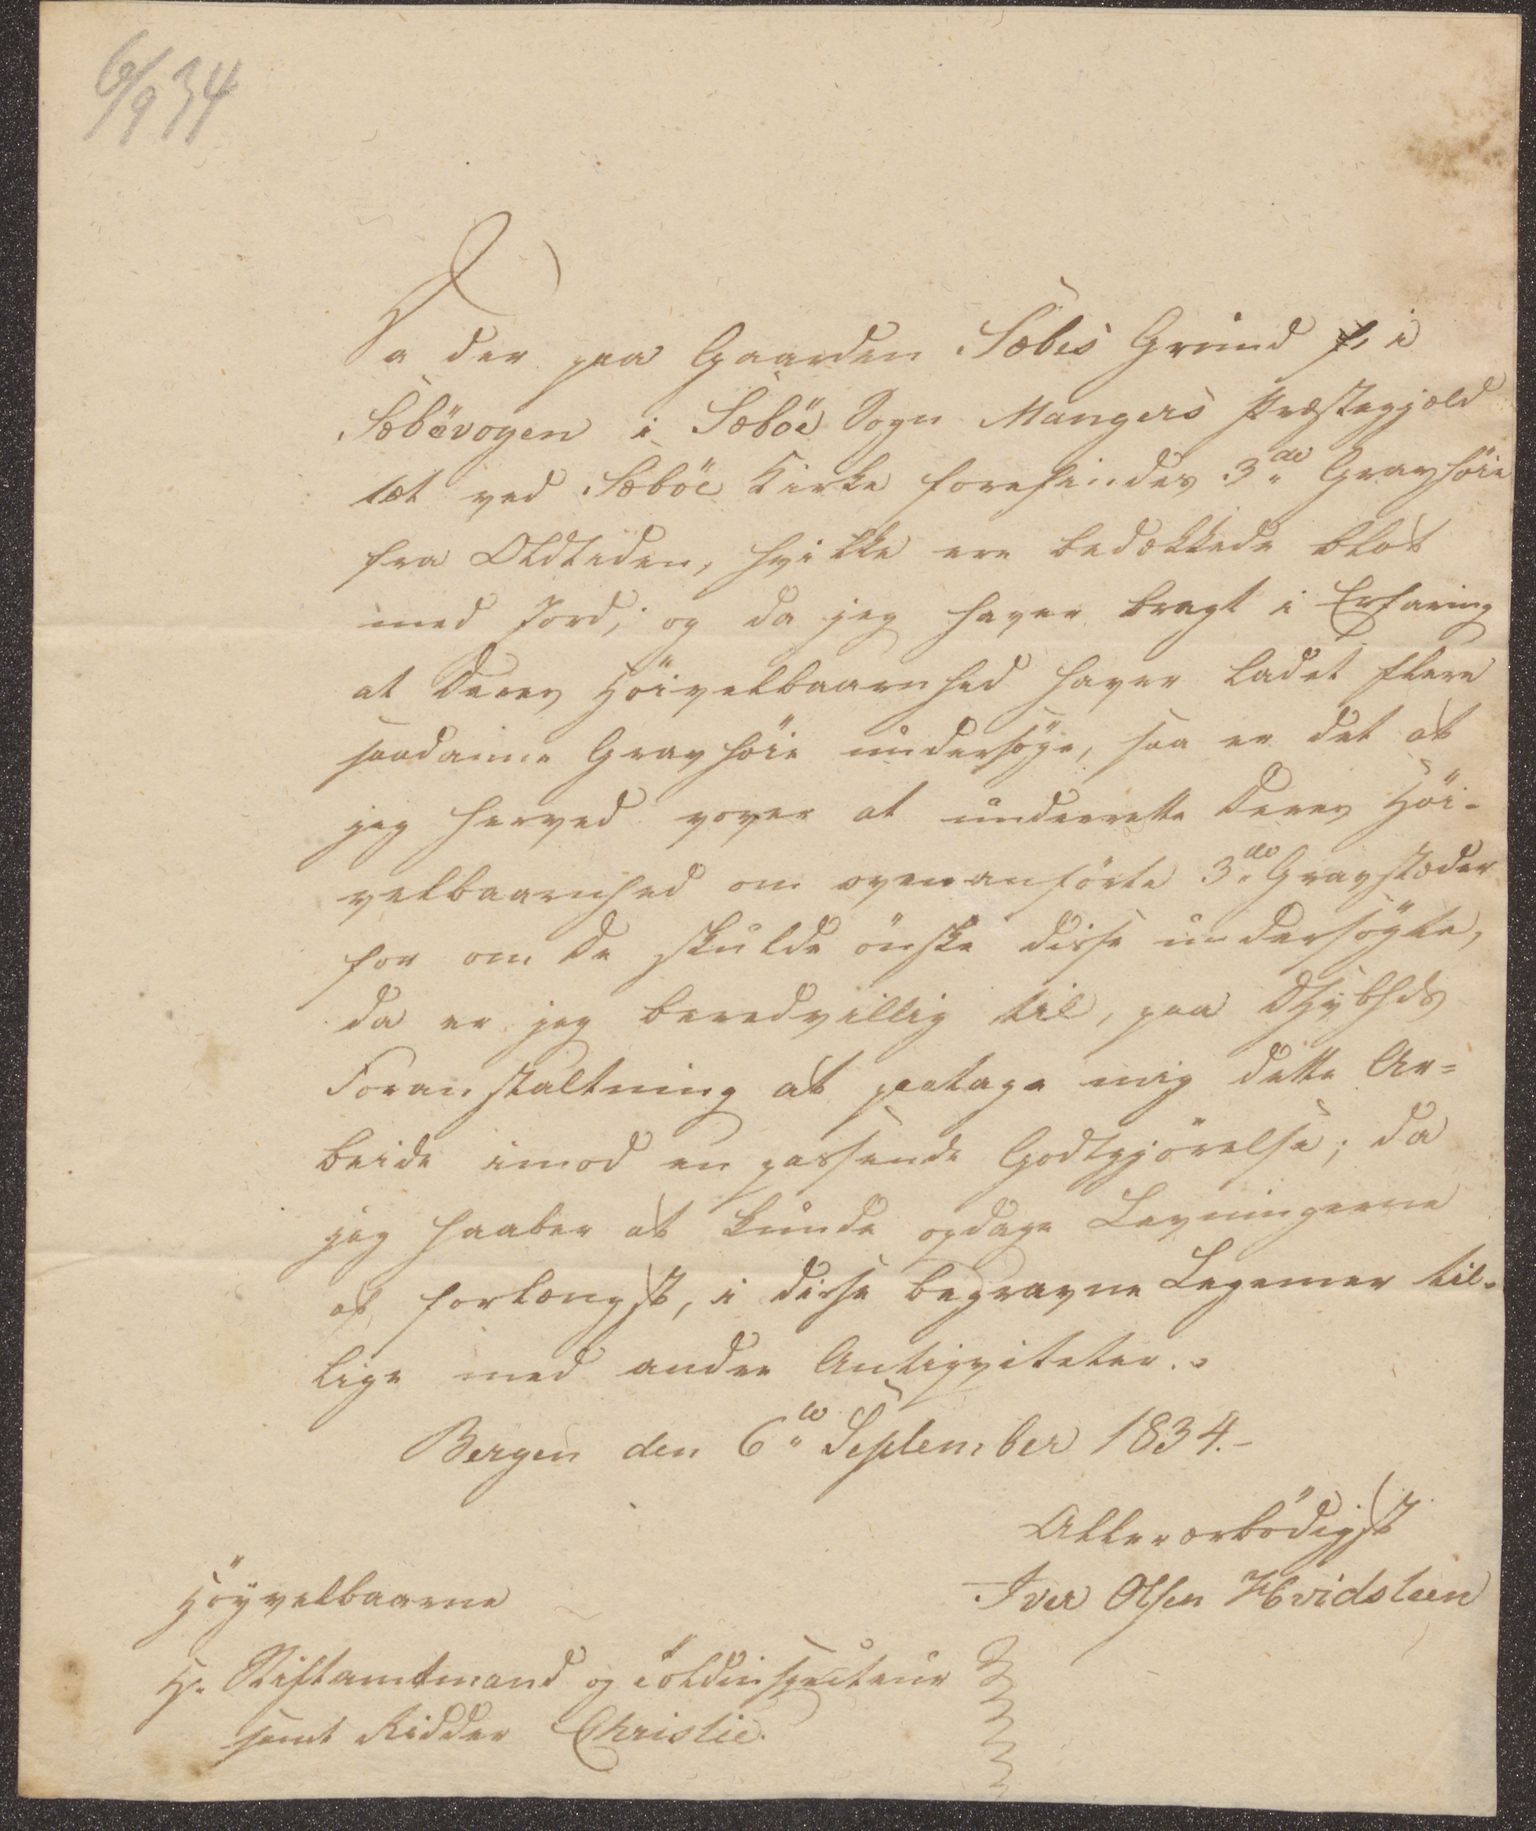 6/9 34
Da der paa Gaarden Sæbøs Grund i
Sæböevogen i Sæböe Sogn Mangers Præstegjæld
tæt ved Sæböe Kirke forefindes 3de Gravhöie
fra Oldtiden, hvilke ere bedækkede blot
med Jord; og da jeg haver bragt i Erfaring
at Deres Höivelbaarnhed haver ladet flere
saadanne Gravhöie undersöge, saa er det at
jeg herved vover at underrette Deres Höi-
velbaarnhed om ovenanförte 3de Gravstæder
for om De skulde önske disse undersögte,
da er jeg beredvillig til, paa
Foranstaltning at paatage mig dette Ar=
beide imod en passende Godtgjörelse; da
jeg haaber at kunde opdage Levningerne
af forlængst, i disse begravne Legemer til-
lige med andre Antiqviteter.
Bergen den 6te September 1834.-
Allerærbödigst
Iver Olsen Hvidsteen
Höyvelbaarne
Hr. Stiftamtmand og Toldinspecteur
samt Ridder Christie.